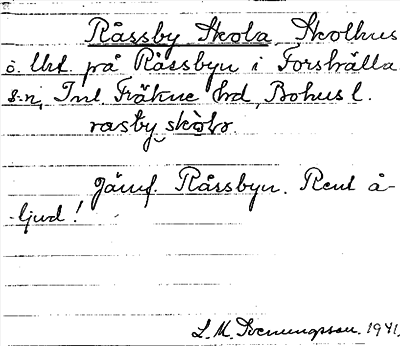 Råssby Skola, Skolhus
ö. Utf. på Råssbyn i Forshälla
s-n, Inl. Fräkne hd, Bohusl.
rasby skolo.
Jämf. Råssbyn. Rent å-
-ljud!
L. M. Svenungsson. 1941.